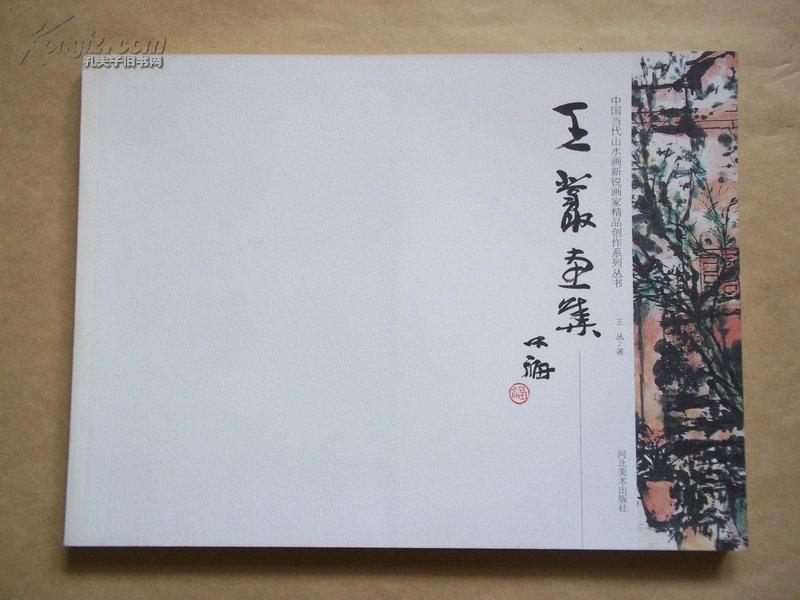 Kongfz.com
孔夫子旧书网
中国当代山水画新锐画家精品创作系列丛书
王叢画集
王 丛/著
河北美术出版社